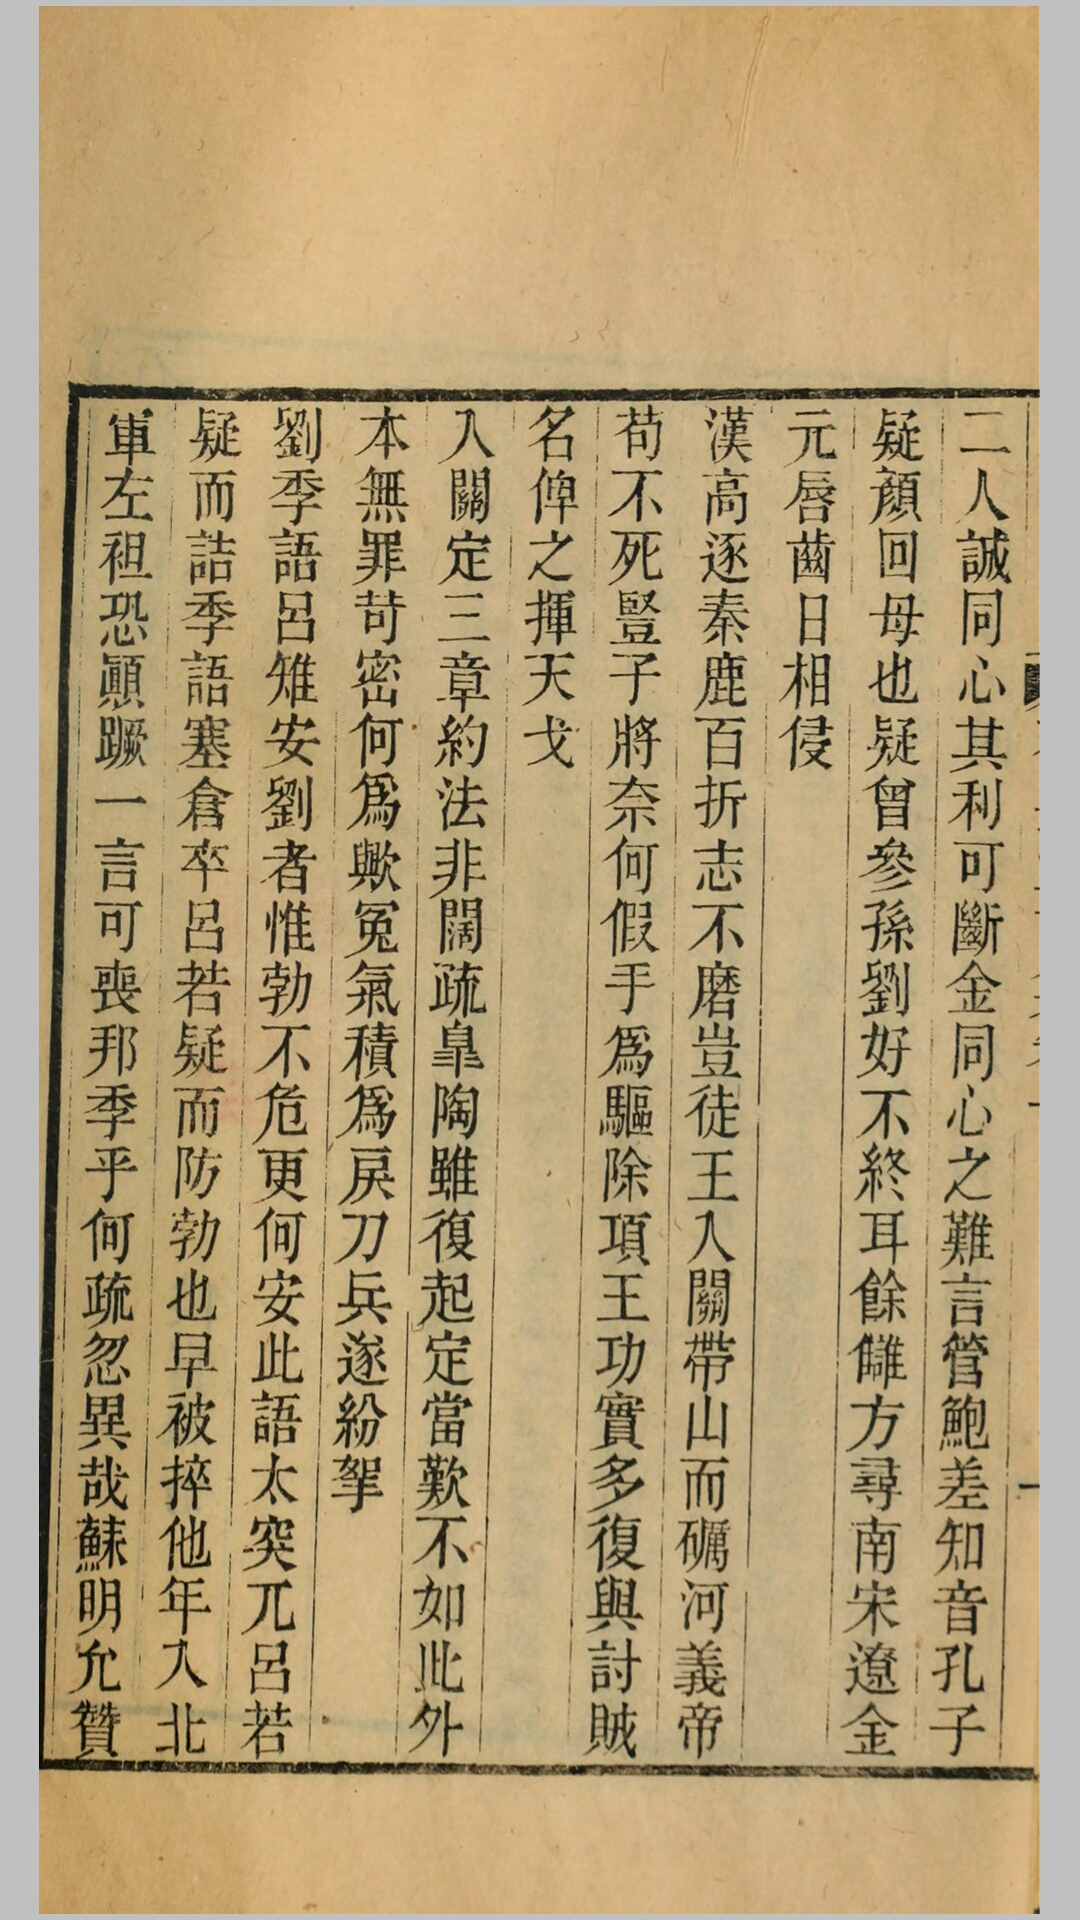 二人誠同心其利可斷金同心之難言管鮑差知音孔子
疑顏回母也疑曾參孫劉好不終耳餘讎方尋南宋遼金
元唇齒日相侵
漢高逐秦鹿百折志不磨豈徒王入關帶山而礪河義帝
苟不死豎子將奈何假手爲驅除項王功實多復與討賊
名俾之揮天戈
入關定三章約法非闊疏臯陶雖復起定當歎不如此外
本無罪苛密何爲歟冤氣積爲戾刀兵遂紛挐
劉季語呂雉安劉者惟勃不危更何安此語太突兀呂若
疑而詰季語塞倉卒呂若疑而防勃也早被捽他年入北
軍左袒恐顚蹶一言可喪邦季乎何疏忽異哉蘇明允贊